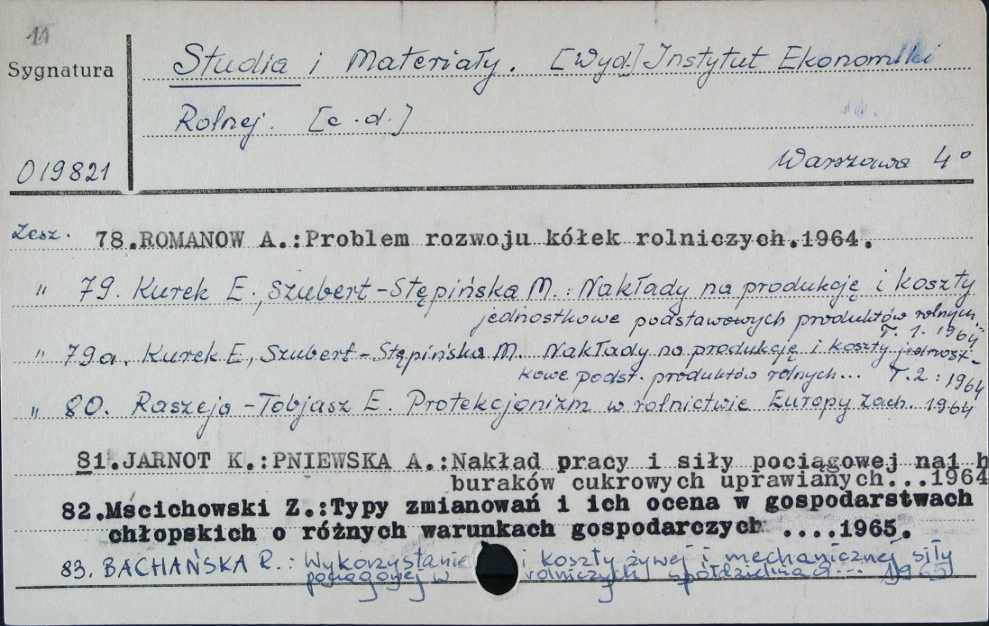 11
Sygnatura
Studia i Materiały. [Wyd.] Instytut Ekonomiki
Rolnej. [c.d.]
019821
Warszawa 4°
Zesz. 78.ROMANOW A.:Problem rozwoju kółek rolniczych.1964.
" 79. Kurek E., Szubert-Stępińska M.: Nakłady na produkcję i koszty
jednostkowe podstawowych produktów rolnych..
T. 1. 1964
" 79a. Kurek E, Szubert-Stępińska M. Nakłady na produkcję i koszty jednost-
kowe podst. produktów rolnych... T.2: 1964
" 80. Raszeja-Tobjasz E. Protekcjonizm w rolnictwie Europy Zach. 1964
81.JARNOT K.:PNIEWSKA A.:Nakład pracy i siły pociągowej na1 h
buraków cukrowych uprawianych...1964
82.Mścichowski Z.:Typy zmianowań i ich ocena w gospodarstwach
chłopskich o różnych warunkach gospodarczych ....1965.
83. BACHAŃSKA R.: Wykorzystanie i koszty żywej i mechanicznej siły
pociągowej w rolniczych